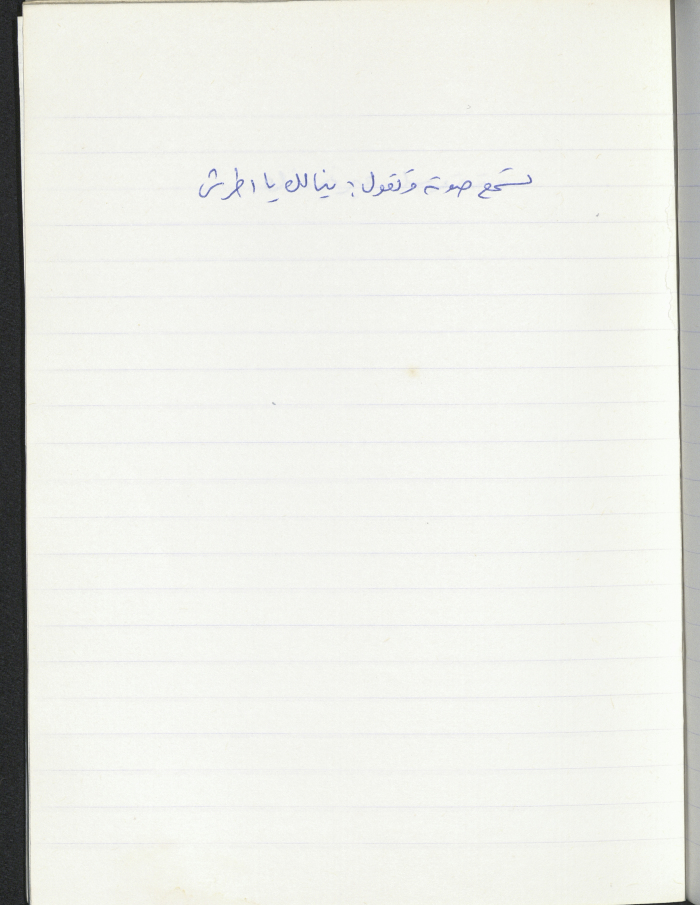 تسمع صوته وتقول: ينالك يا اطرش